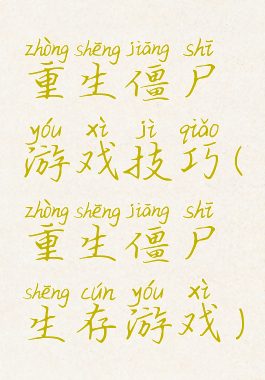 zhòng shēng jiāng shī
重生僵尸
yóu xì jì qiǎo
游戏技巧(
zhòng shēng jiāng shī
重生僵尸
shēng cún yóu xì
生存游戏)